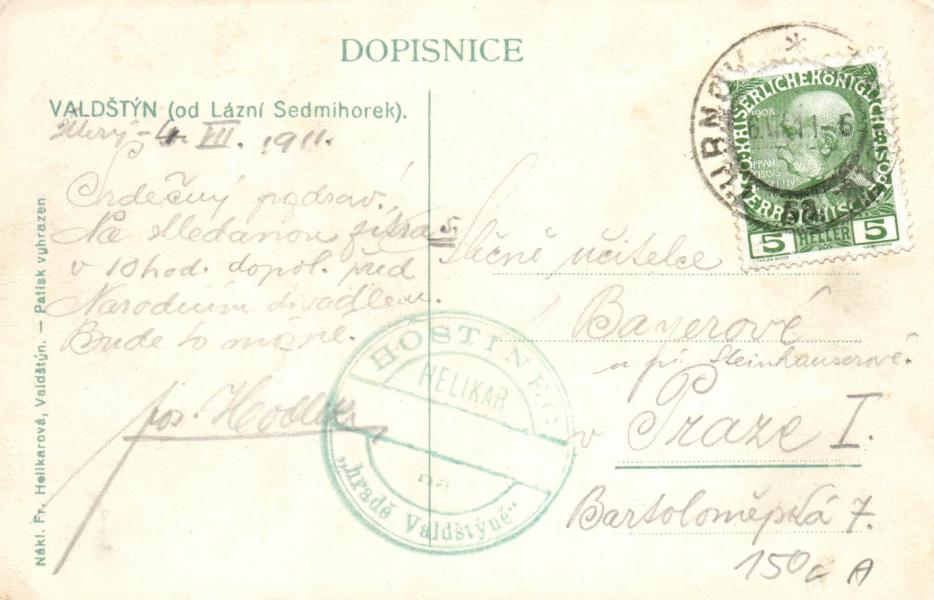 DOPISNICE
VALDŠTÝN (od Lázní Sedmihorek).
4. VII. 1911.
Srdečný pozdrav!
Na shledanou zítra 5.
v 10 hod. dopol. před
Národním divadlem.
Bude to možné.
Jos.
Nákl. Fr. Helikarová, Valdštýn. — Patisk vyhrazen
HOSTINEC
HELIKAR
na
„hradě Valdštýně"
TURNOV
KAISERLICHE KÖNIGLICHE ÖSTERREICHISCHE
1908
FRANCISCUS
5 HELLER 5
Slečně učitelce
Bayerové
u pí. Steinhauserové.
v Praze I.
Bartolomějská 7.
150
A